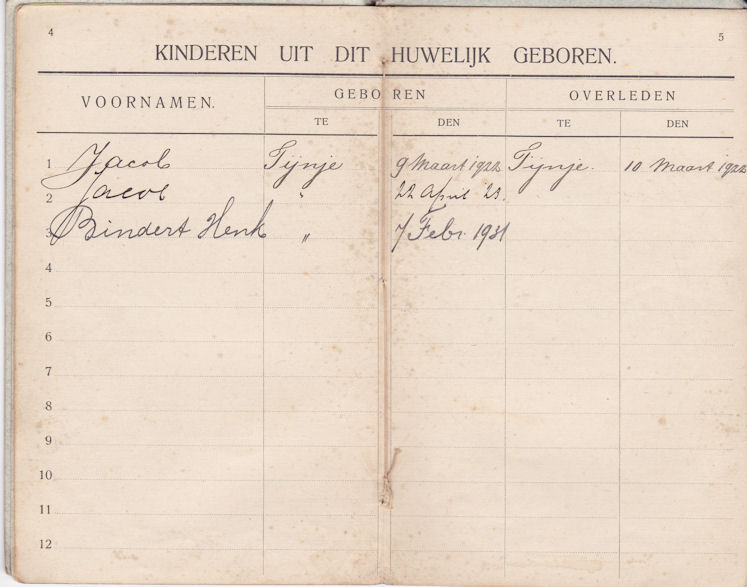 4
5
KINDEREN UIT DIT HUWELIJK GEBOREN.
VOORNAMEN.
GEBOREN
OVERLEDEN
TE
DEN
TE
DEN
1 Jacob Tijnje 9 Maart 1922 Tijnje. 10 Maart 1922
2 Jacob " 22 April 23.
3 Bindert Henk " 7 Febr. 1931
4
5
6
7
8
9
10
11
12